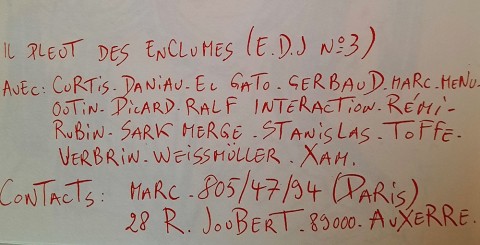 IL PLEUT DES ENCLUMES (E.D.J Nº3)
AVEC: CURTIS-DANIAU-EL GATO-GERBAUD-MARC-MENU-
OUTIN-PICARD-RALF INTERACTION-RÉMI-
RUBIN-SARK MERGE-STANISLAS-TOFFE-
VERBRIN-WEISSMÜLLER-XAM.
CONTACTS: MARC-805/47/94 (PARIS)
28 R. JOUBERT-89000-AUXERRE.